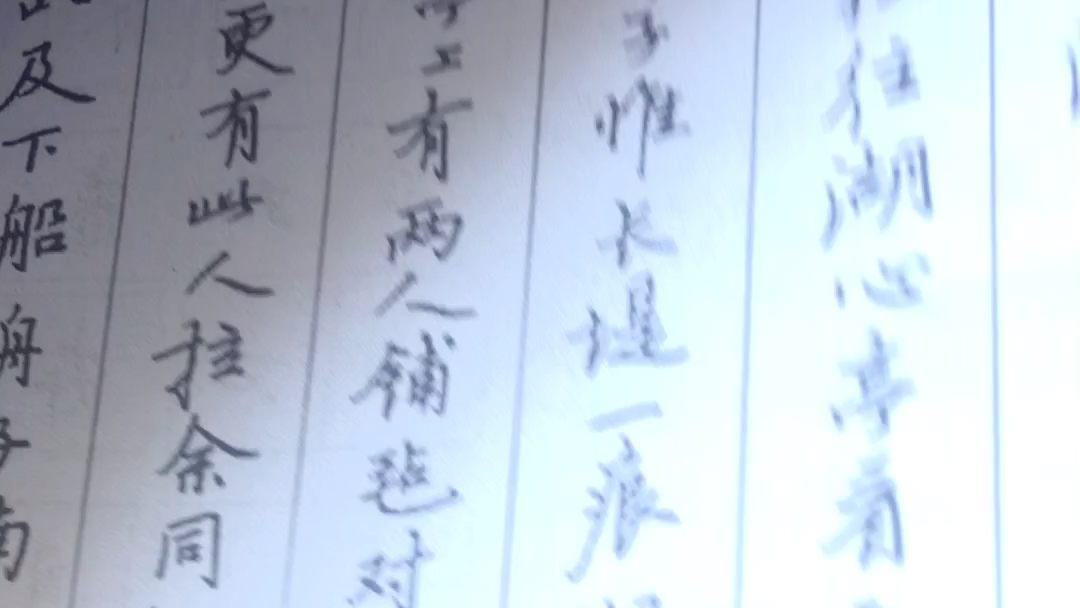 往湖心亭看
子惟长堤一痕
上有两人铺毡对
更有此人拉余同
及下船舟子喃